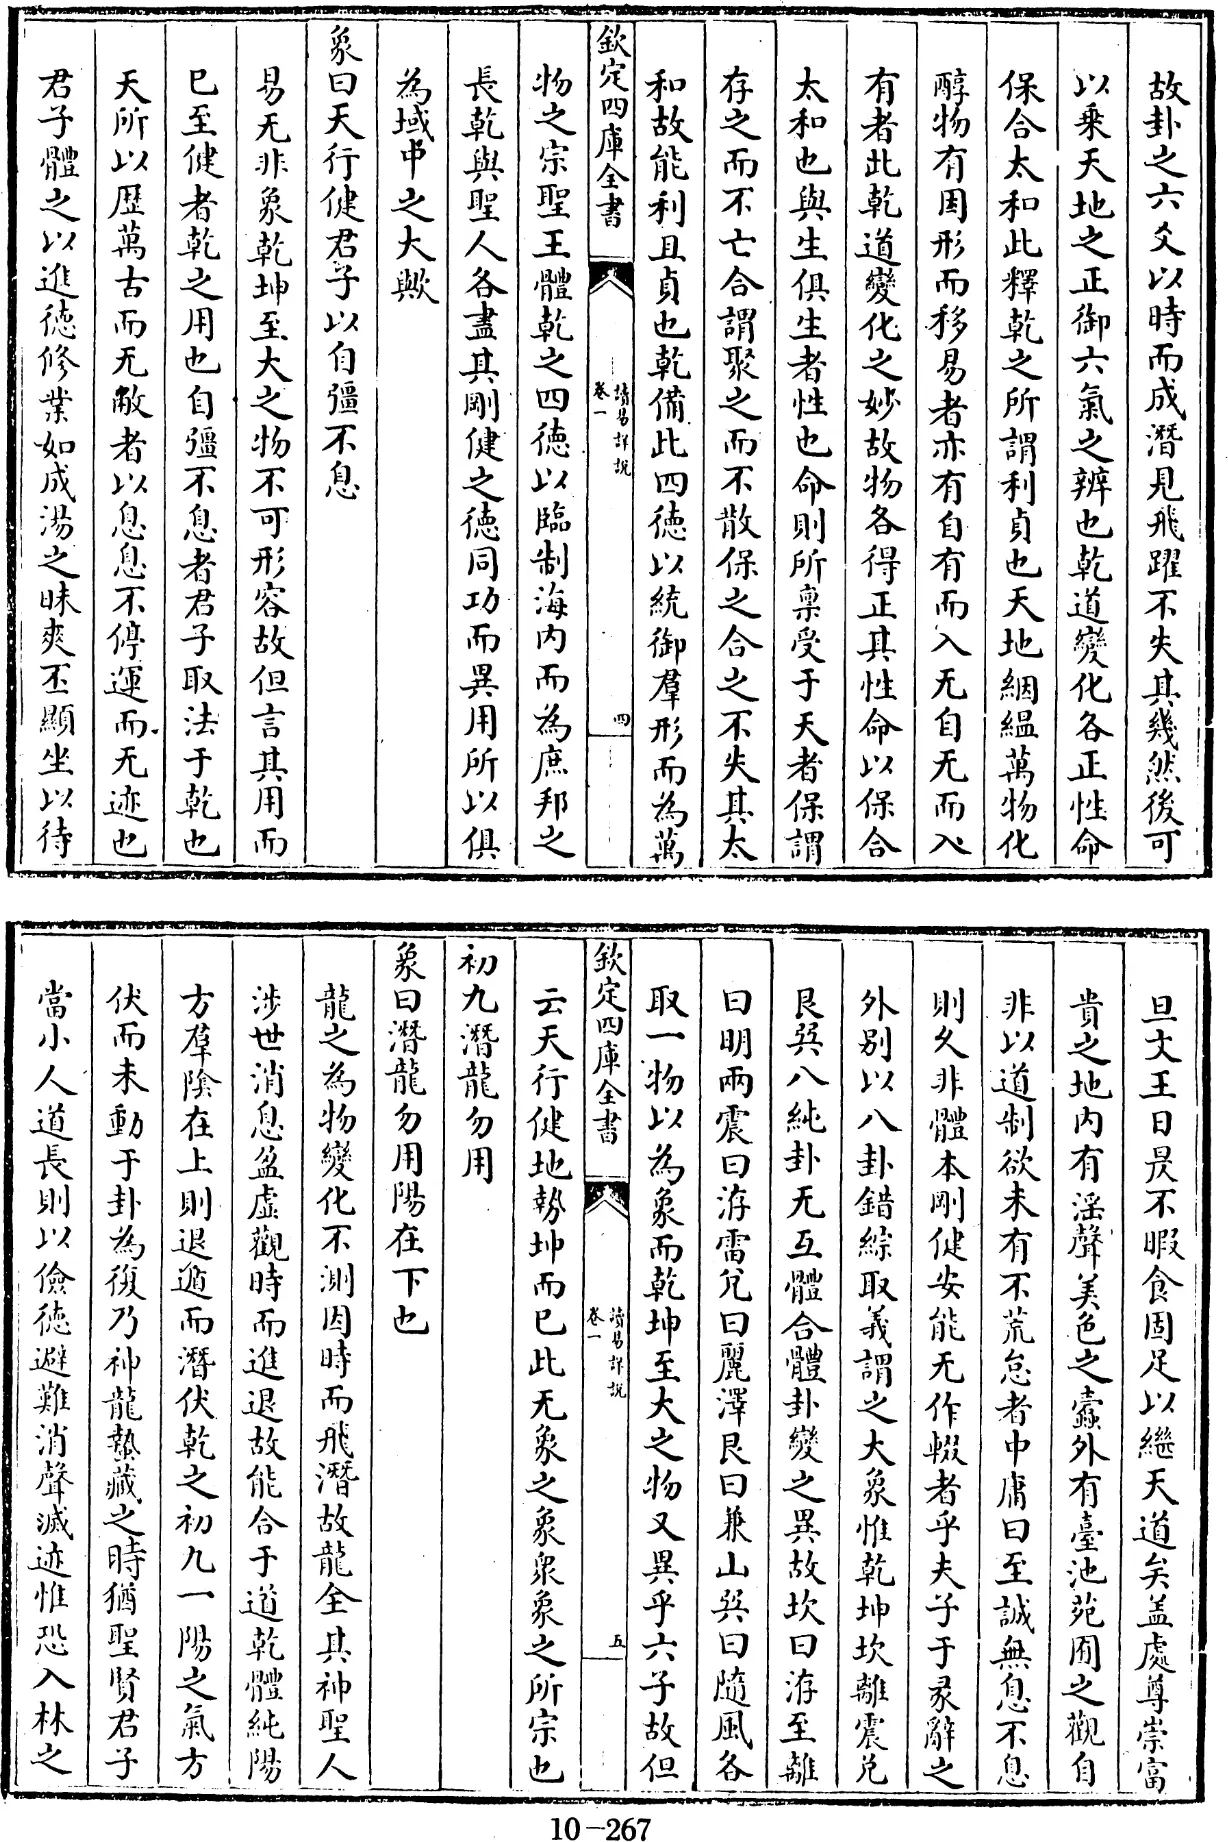 故卦之六爻以時而成潛見飛躍不失其幾然後可
以乗天地之正御六氣之辨也乾道變化各正性命
保合太和此釋乾之所謂利貞也天地絪緼萬物化
醇物有因形而移易者亦有自有而入无自无而入
有者此乾道變化之妙故物各得正其性命以保合
太和也與生俱生者性也命則所禀受于天者保謂
存之而不亡合謂聚之而不散保之合之不失其太
和故能利且貞也乾備此四徳以統御羣形而為萬
欽定四庫全書
讀易詳說
卷一
四
物之宗聖王體乾之四徳以臨制海内而為庶邦之
長乾與聖人各盡其剛健之徳同功而異用所以俱
為域中之大歟
象曰天行健君子以自彊不息
易无非象乾坤至大之物不可形容故但言其用而
已至健者乾之用也自彊不息者君子取法于乾也
天所以歴萬古而无敝者以息息不停運而无迹也
君子體之以進徳修業如成湯之昧爽丕顯坐以待
旦文王日昃不暇食固足以繼天道矣盖處尊崇富
貴之地内有滛聲美色之蠱外有臺池苑囿之觀自
非以道制欲未有不荒怠者中庸曰至誠無息不息
則久非體本剛健安能无作輟者乎夫子于彖辭之
外别以八卦錯綜取義謂之大象惟乾坤坎離震兌
艮巽八純卦无互體合體卦變之異故坎曰洊至離
曰明兩震曰洊雷兌曰麗澤艮曰兼山巽曰隨風各
取一物以為象而乾坤至大之物又異乎六子故但
欽定四庫全書
讀易詳說
卷一
五
云天行健地勢坤而已此无象之象衆象之所宗也
初九潛龍勿用
象曰潛龍勿用陽在下也
龍之為物變化不測因時而飛潛故龍全其神聖人
涉世消息盈虛觀時而進退故能合于道乾體純陽
方羣隂在上則退遁而潛伏乾之初九一陽之氣方
伏而未動于卦為復乃神龍蟄藏之時猶聖賢君子
當小人道長則以儉徳避難消聲滅迹惟恐入林之
10-267